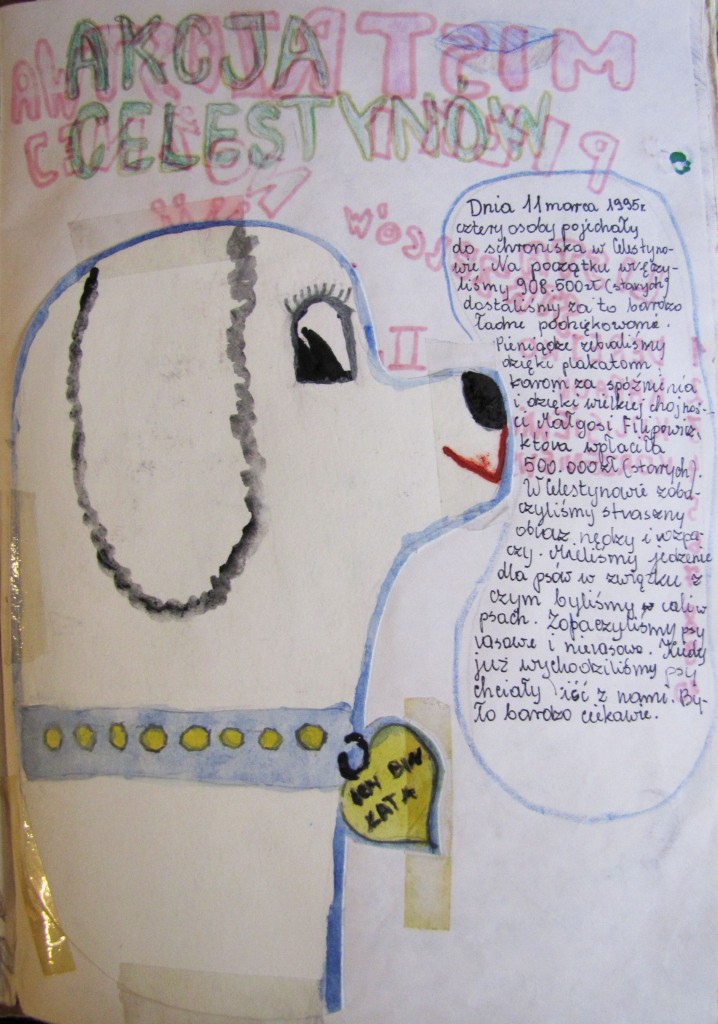 AKCJA
CELESTYNÓW
Dnia 11 marca 1995r.
cztery osoby pojechały
do schroniska w Celestyno-
wie. Na początku wręczy-
liśmy 908.500 zł (starych)
dostaliśmy za to bardzo
ładne podziękowanie.
Pieniądze zebraliśmy
dzięki plakatom
karom za spóźnienia
i dzięki wielkiej chojnoś-
ci Małgosi Filipowicz,
która wpłaciła
500.000 zł (starych).
W Celestynowie zoba-
czyliśmy straszny
obraz nędzy i rozpa
czy. Mieliśmy jedzenie
dla psów w związku z
czym byliśmy cali w
psach. Zobaczyliśmy psy
rasowe i nierasowe. Kiedy
już wychodziliśmy psy
chciały iść z nami. By-
ło bardzo ciekawie.
ICH BIN
KATA